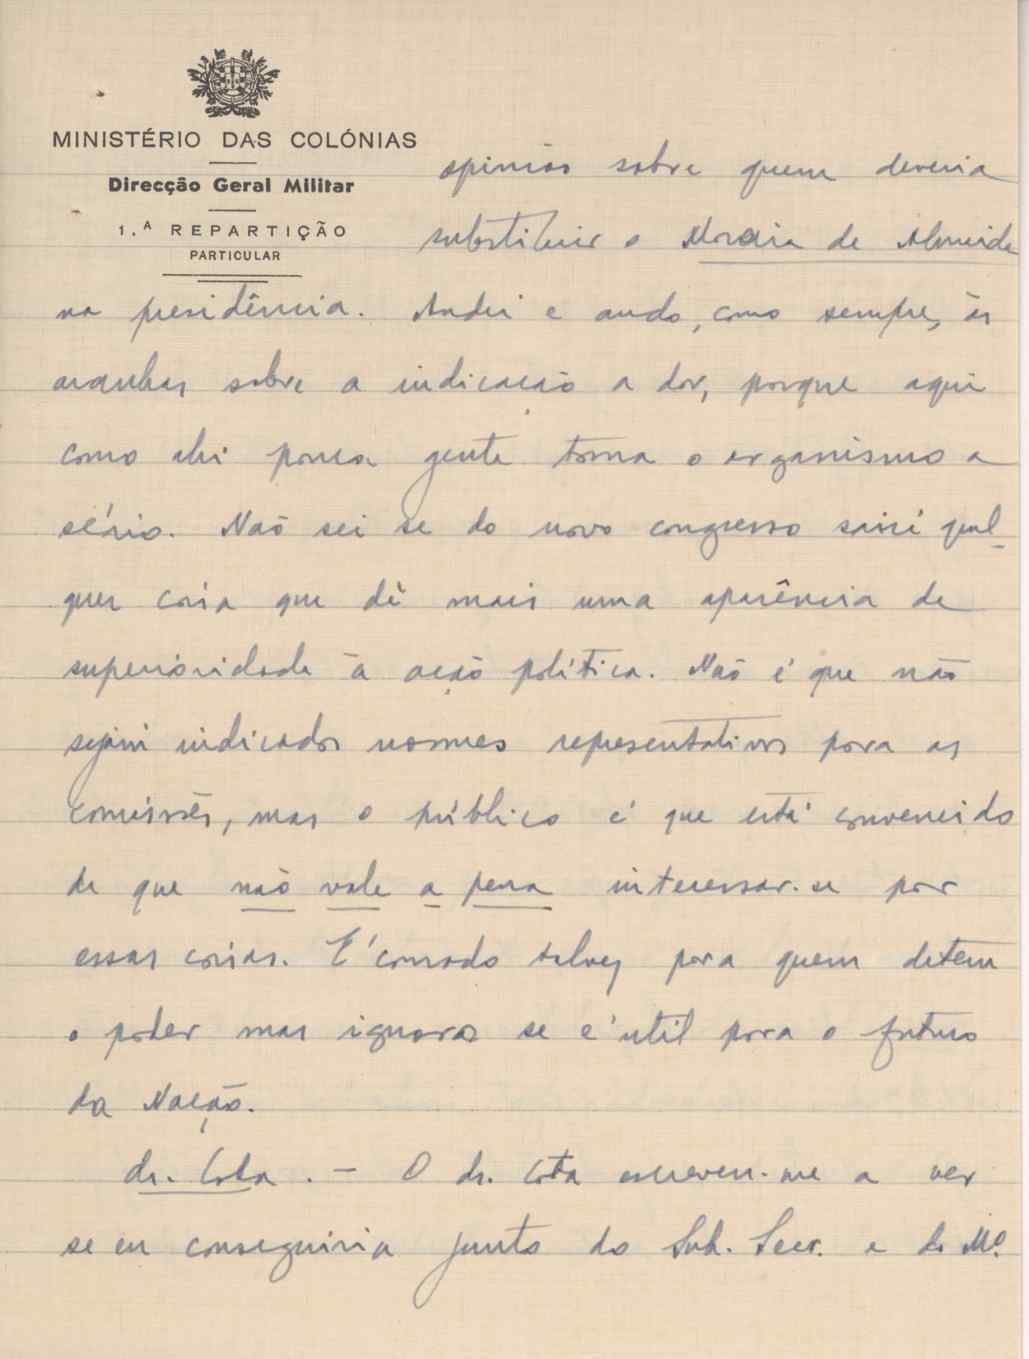 MINISTÉRIO DAS COLÓNIAS
Direcção Geral Militar
1.ª REPARTIÇÃO
PARTICULAR
opinião sobre quem deveria
substituir o Moraia de Almeida
na presidência. Andei e ando, como sempre, às
aranhas sobre a indicação a dar, porque aqui
como ahi pouca gente toma o organismo a
sério. Não sei se do novo congresso sairá qual-
quer coisa que dê mais uma aparência de
superioridade à acção política. Não é que não
sejam indicados nomes representativos para as
comissões, mas o público é que está convencido
de que não vale a pena interessar-se por
essas coisas. É cómodo talvez para quem detem
o poder mas ignoro se é útil para o futuro
da Nação.
dr. Cota. - O dr. Cota escreveu-me a ver
se eu conseguiria junto do Sub. Secr. e do Mº.